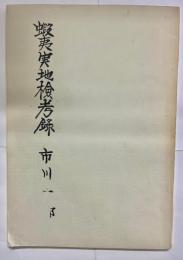 蝦夷実地検考録
市川一